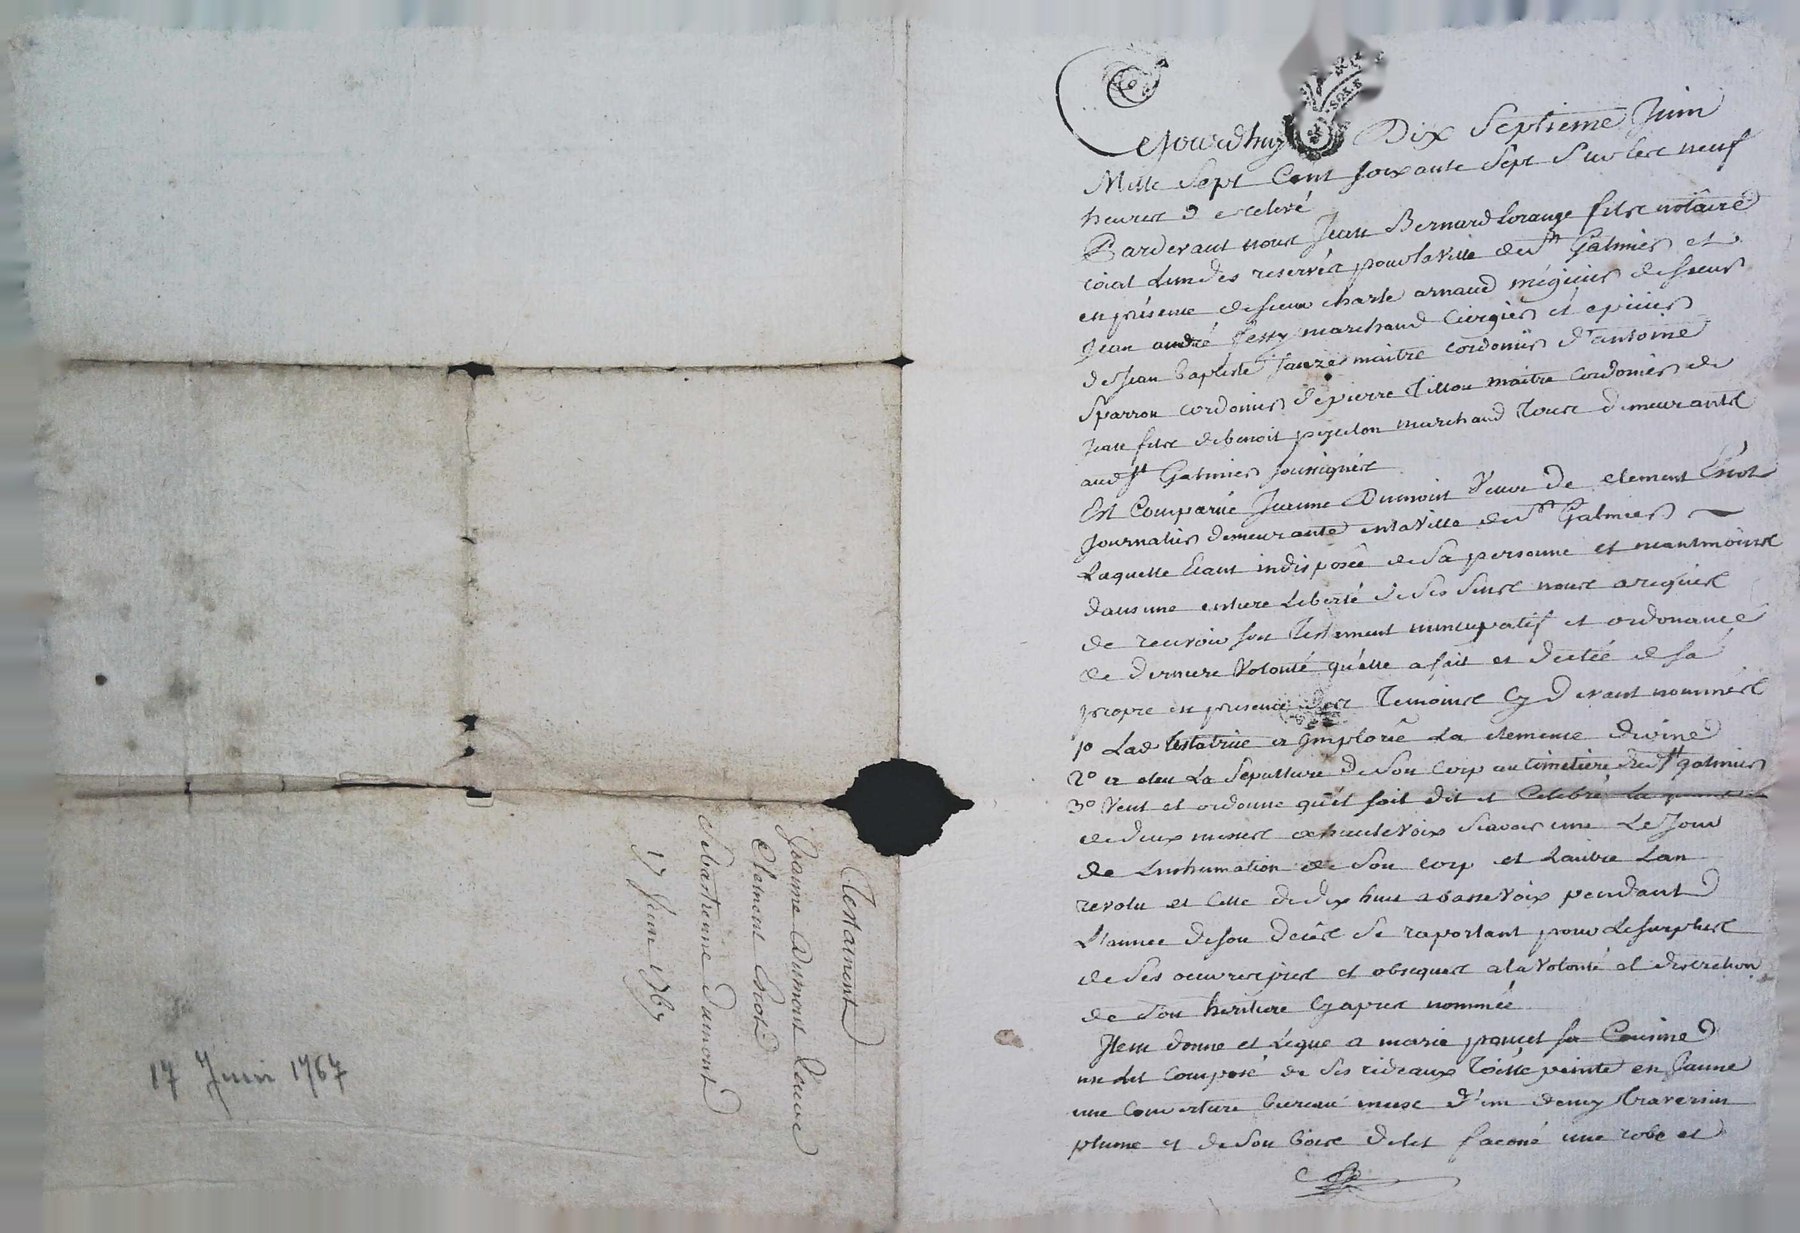 Testament
Jeanne Dumont Veuve
Clement Escot
Sebastienne Dumont
17 Juin 1767
17 Juin 1767
Cejourdhuy Dix Septieme Juin
Mille Sept Cent soixante Sept Sur les neuf
heures de relevé
Pardevant nous Jean Bernard Lorange fils notaire
roial Lun des reservés pour la Ville de St Galmier et
en présence de sieur charle arnaud mégicier de sieur
Jean andré Jessy marchand Cirgier et epicier
de Jean baptiste Fauze maitre cordonnier d'antoine
Sparron cordonier de pierre Tillon maitre Cordonier de
Jean fils de benoit pizelon marchand Tous demeurants
aud St Galmier soussignés
Est Comparüe Jeanne Dumont Veuve de Clement Escot
Journalier demeurante en la Ville de St Galmier
Laquelle Etant indisposée de Sa personne et neantmoins
dans une entiere Liberté de Ses Sens nous a requis
de recevoir son Testament nuncupatif et ordonance
de derniere Volonté qu'elle a fait et dictée de sa
propre en presence des Temoins Cy devant nommés
1o Lad testatrice a Jmplorée La clemence divine
2o a eleu La Sepulture de Son Corp au cimetiere de St galmier
3o Veut et ordonne qu'il soit dit et Celebré la
de deux messes a haute Voix scavoir une Le Jour
de Linhumation de Son Corp et Lautre Lan
revolu et Celle de dix huit a basse Voix pendant
L'année de son décès Se raportant pour Le surplus
de Ses oeuvres pies et obseques a la Volonté et discretion
de Son heritiere Cy apres nommée
Jtem donne et Légue a marie poncet sa Cousine
un Lit Composé de Ses rideaux Toille peinte en Jaune
une Couverture bureau muse d'un demy traversin
plume et de Son bois de lit faconé une robe et